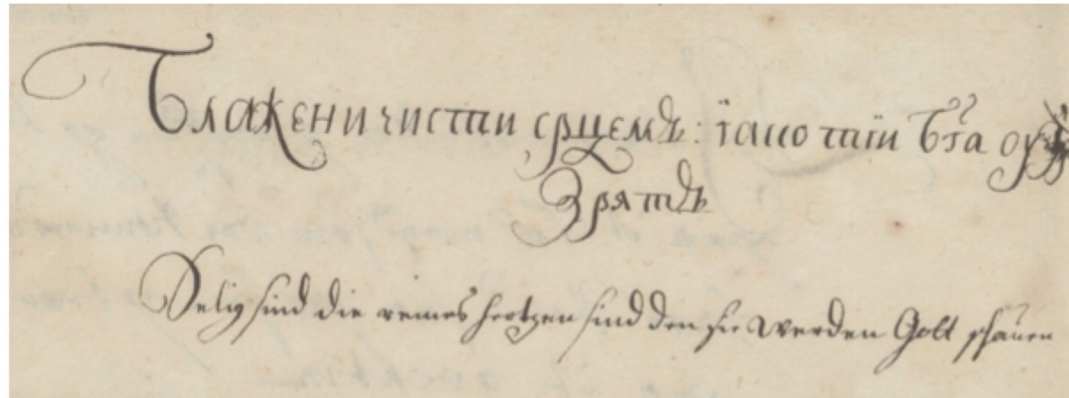 Блажени чисти срцемъ: їако тїи Бг҃а оу
Зрятъ
Selig sind die reines hertzen sind den sie werden Gott schauen